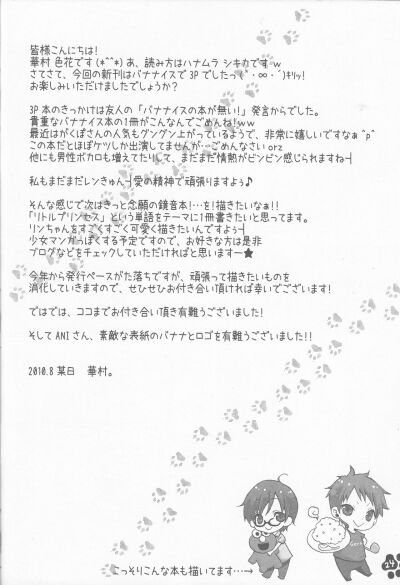 皆様こんにちは!
華村 色花です(*^^*) あ、読み方はハナムラ シキカですw
さてさて、今回の新刊はバナナイスで3Pでしたっ(`・∞・´)ｷﾘｯ!
お楽しみいただけましたでしょうか?
3P本のきっかけは友人の「バナナイスの本が無い!」発言からでした。
貴重なバナナイス本の1冊がこんなでごめんね!ww
最近はがくぽさんの人気もグングン上がっているようで、非常に嬉しいですなぁ^p^
この本だとほぼケツしか出演してませんが…ごめんなさい orz
他にも男性ボカロも増えてたりして、まだまだ情熱がビンビン感じられますね┤
私もまだまだレンきゅん┤愛の精神で頑張りますよぅ♪
そんな感じで次はきっと念願の鏡音本!…を!描きたいなぁ!!
「リトルプリンセス」という単語をテーマに1冊書きたいと思ってます。
リンちゃんをすごくすごく可愛く描きたいんですよう┤
少女マンガっぽくする予定ですので、お好きな方は是非
ブログなどをチェックしていただければと思いますー★
今年から発行ペースがた落ちですが、頑張って描きたいものを
消化していきますので、ぜひぜひお付き合い頂ければ幸いでございます!
ではでは、ココまでお付き合い頂き有難うございました!
そして ANI さん、素敵な表紙のバナナとロゴを有難うございました!!
2010.8 某日 華村。
こっそりこんな本も描いてます…→
24